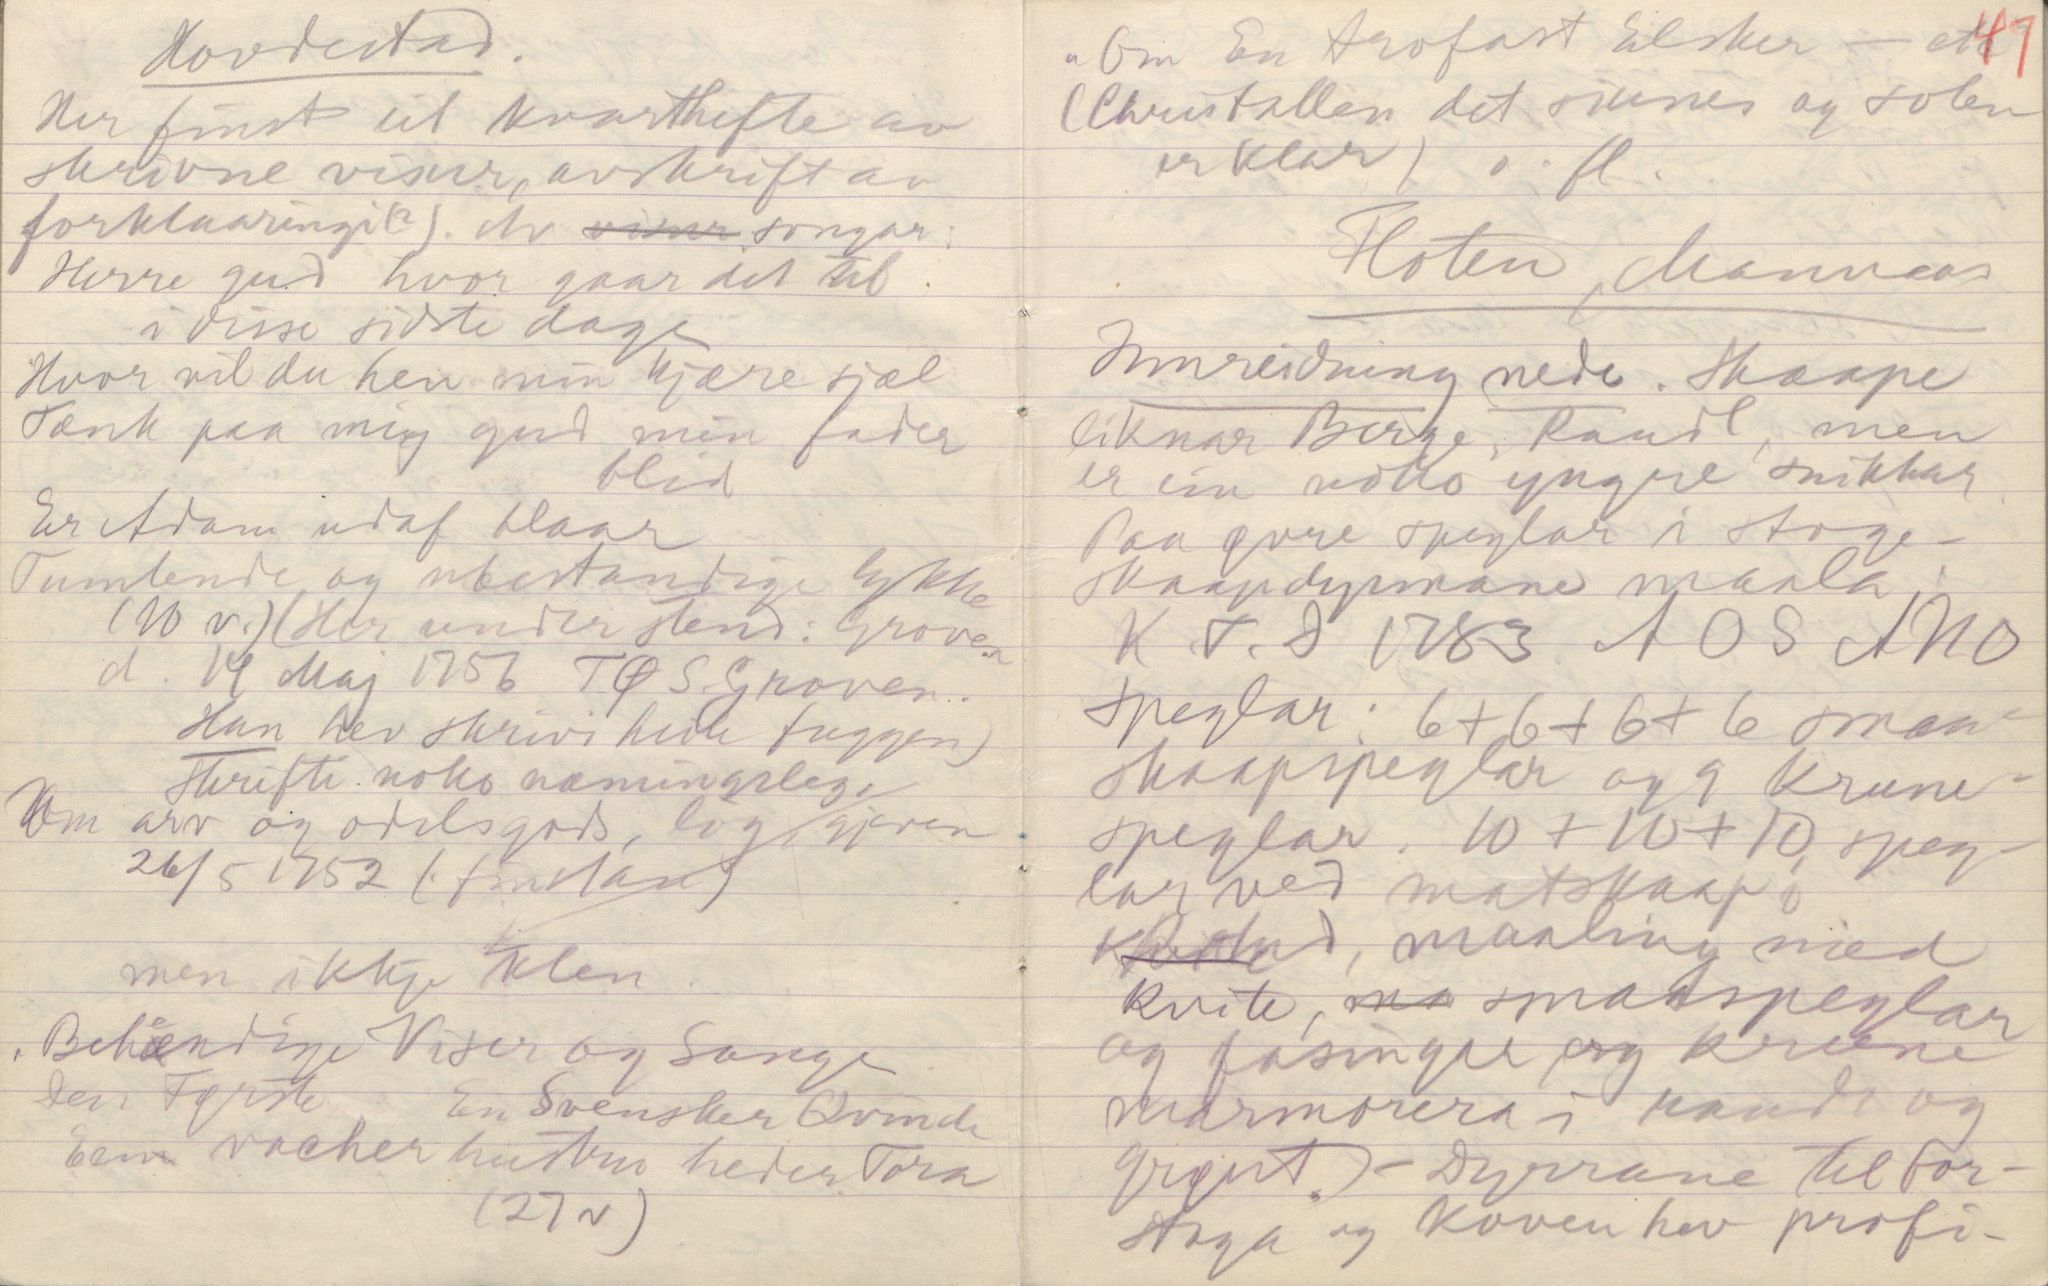 Hovdestad.
Her finst eit kvarthefte av
skrivne viser, avskrift av
forklaaringi(?). Av viser songar:
Herre gud hvor gaar det til
i disse sidste dage
Hvor vil du hen min kjære sjæl
Tænk paa mig gud min fader
blid
Er Adam udaf blaar
Tumlende og ubestandige lykke
(10 v.) (Her under stend: Groven
d. 14 Maj 1756 TØS. Groven.
Han hev skrivi heile tuggen)
Skrifti noko næmingslege
Om arv og odelsgods, log gjeven
26/5 1752
men ikkje klen.
Behændige Viser og Sange
Den Første En Svensker Qvinde
Een vacker hustru heder Tora
(27 v)
47
"Om En trofast Elsker — etc
(Christallen det skines og solen
er klar) o. fl.
Floten, Mannaas
Innreidning nede. Skaape
liknar Berge, Raudl, men
er ein noko yngre snikkar.
Paa øvre speglar i stoge-
skaapdyrnane maala:
K. T. S 1783 A O S ANO
Speglar: 6+6+6+6 smaa
skaapspeglar og 9 krune-
speglar. 10+10+10 speg-
lar ved matskaap i
maaling med
kvite, ma smaaspeglar
og fasingar og krune
marmorera i raudt og
grønt.) – Dyrrane til For-
stoga og Koven hev profi-